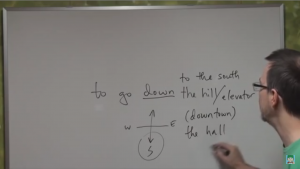 to the south
to go down the hill/elevator
(downtown)
W E the hall
S